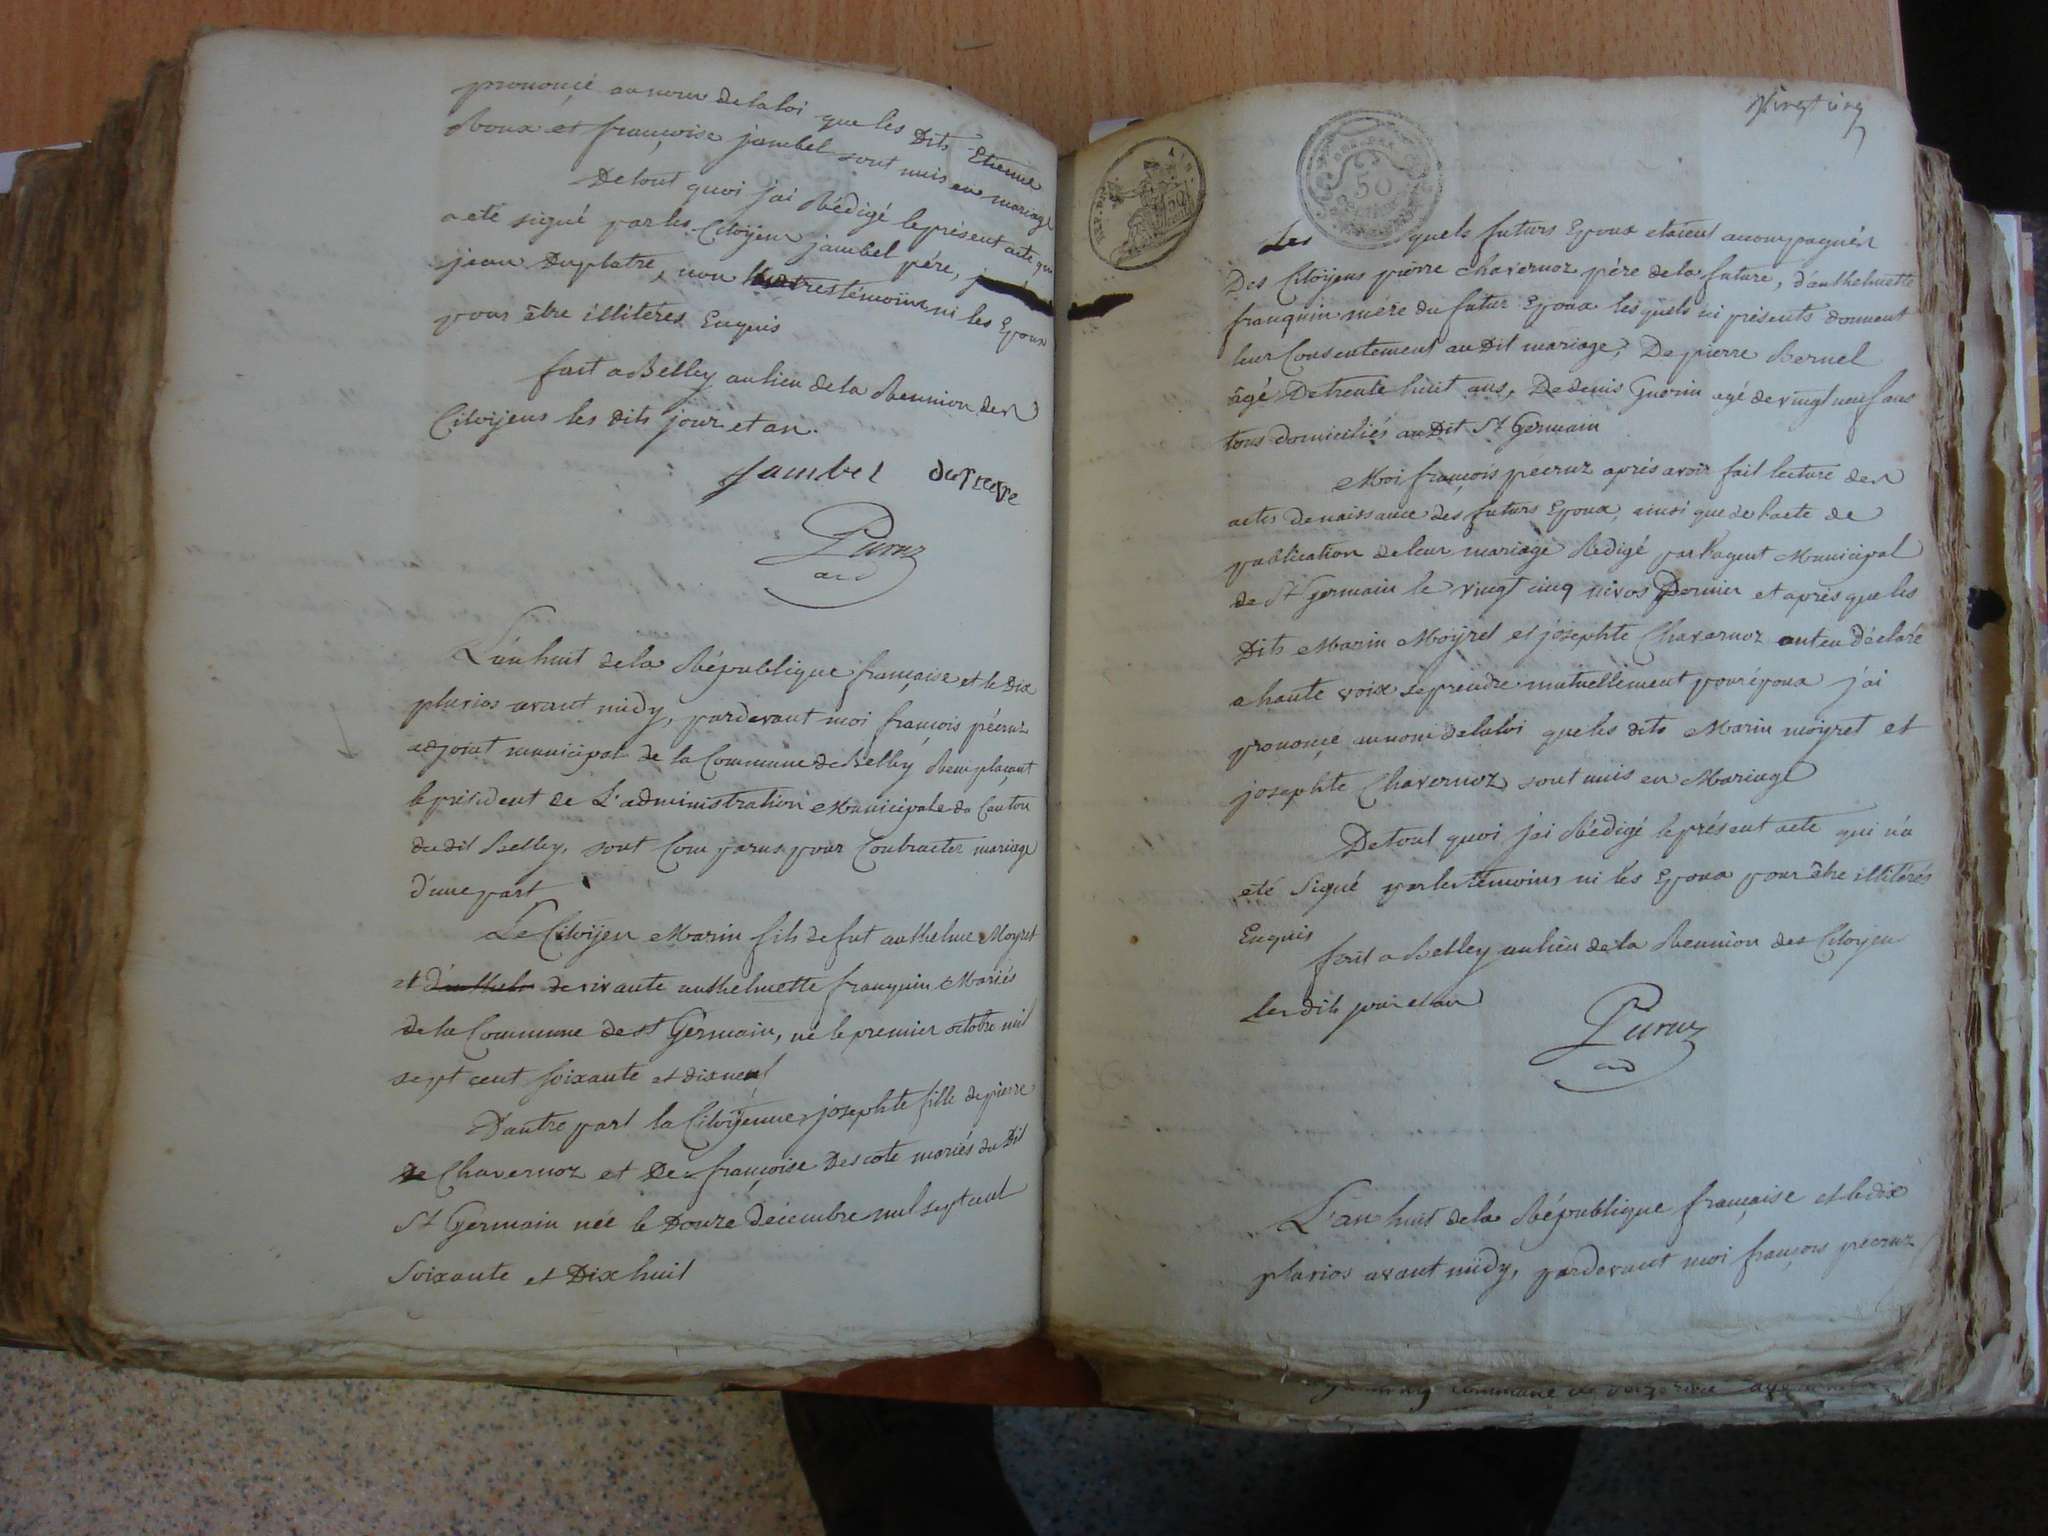 prononçé au nom de la loi que les Dits Etienne
Roux et françoise jambel sont unis en mariage
De tout quoi j'ai Rédigé le présent acte qui
a eté signé par les Citoyens jambel pére,
jean Duplatre, non les autres témoins ni les Epoux
pour être illiteres Enquis
fait a Belley au lieu de la Reunion des
Citoyens les dits jour et an.
Jambel
Pecruz
adj
L'an huit de la République française et le Dix
pluvios avant midy, pardevant moi françois pécruz
adjoint municipal de la Commune de Belley Remplaçant
le président de L'administration Municipale du Canton
du dit Belley, sont Comparus pour Contracter mariage
d'une part
Le Citoyen Marin fils de fut anthelme Moyret
et d'anthel de vivante anthelmette franquin Mariés
de la Commune de st Germain, né le premier octobre mil
sept cent soixante et dix neuf
D'autre part la Citoyenne josephte fille de pierre
de Chavernoz et De françoise Descote mariés du Dit
St Germain née le Douze décembre mil sept cent
Soixante et Dix huit
Vingt cinq
50
Les quels futurs Epoux etaient accompagnés
Des Citoyens pierre chavernoz pére de la future, d'anthelmette
franquin mére du futur Epoux les quels ici présents donnent
leur Consentement au Dit mariage, De pierre Bernel
âgé De trente huit ans, De denis Guérin agé de vingt neuf ans
tous domiciliés au Dit St Germain
Moi françois pécruz aprés avoir fait lecture des
actes de naissance des futurs Epoux, ainsi que de l'acte de
publication de leur mariage Rédigé par l'agent Municipal
de St Germain le vingt cinq nivos Dernier et aprés que les
Dits Marin Moyret et josephte Chavernoz ont eu déclaré
a haute voix se prendre mutuellement pour époux j'ai
prononçé au nom de la loi que les dits Marin moyret et
josephte Chavernoz sont unis en Mariage
De tout quoi j'ai Rédigé le présent acte qui n'a
eté Signé par les témoins ni les Epoux pour être illitérés
Enquis
fait a Belley au lieu de la Reunion des Citoyens
Les dits jour et an
Pecruz
adj
L'an huit de la République française et le dix
pluvios avant midy, pardevant moi françois pecruz